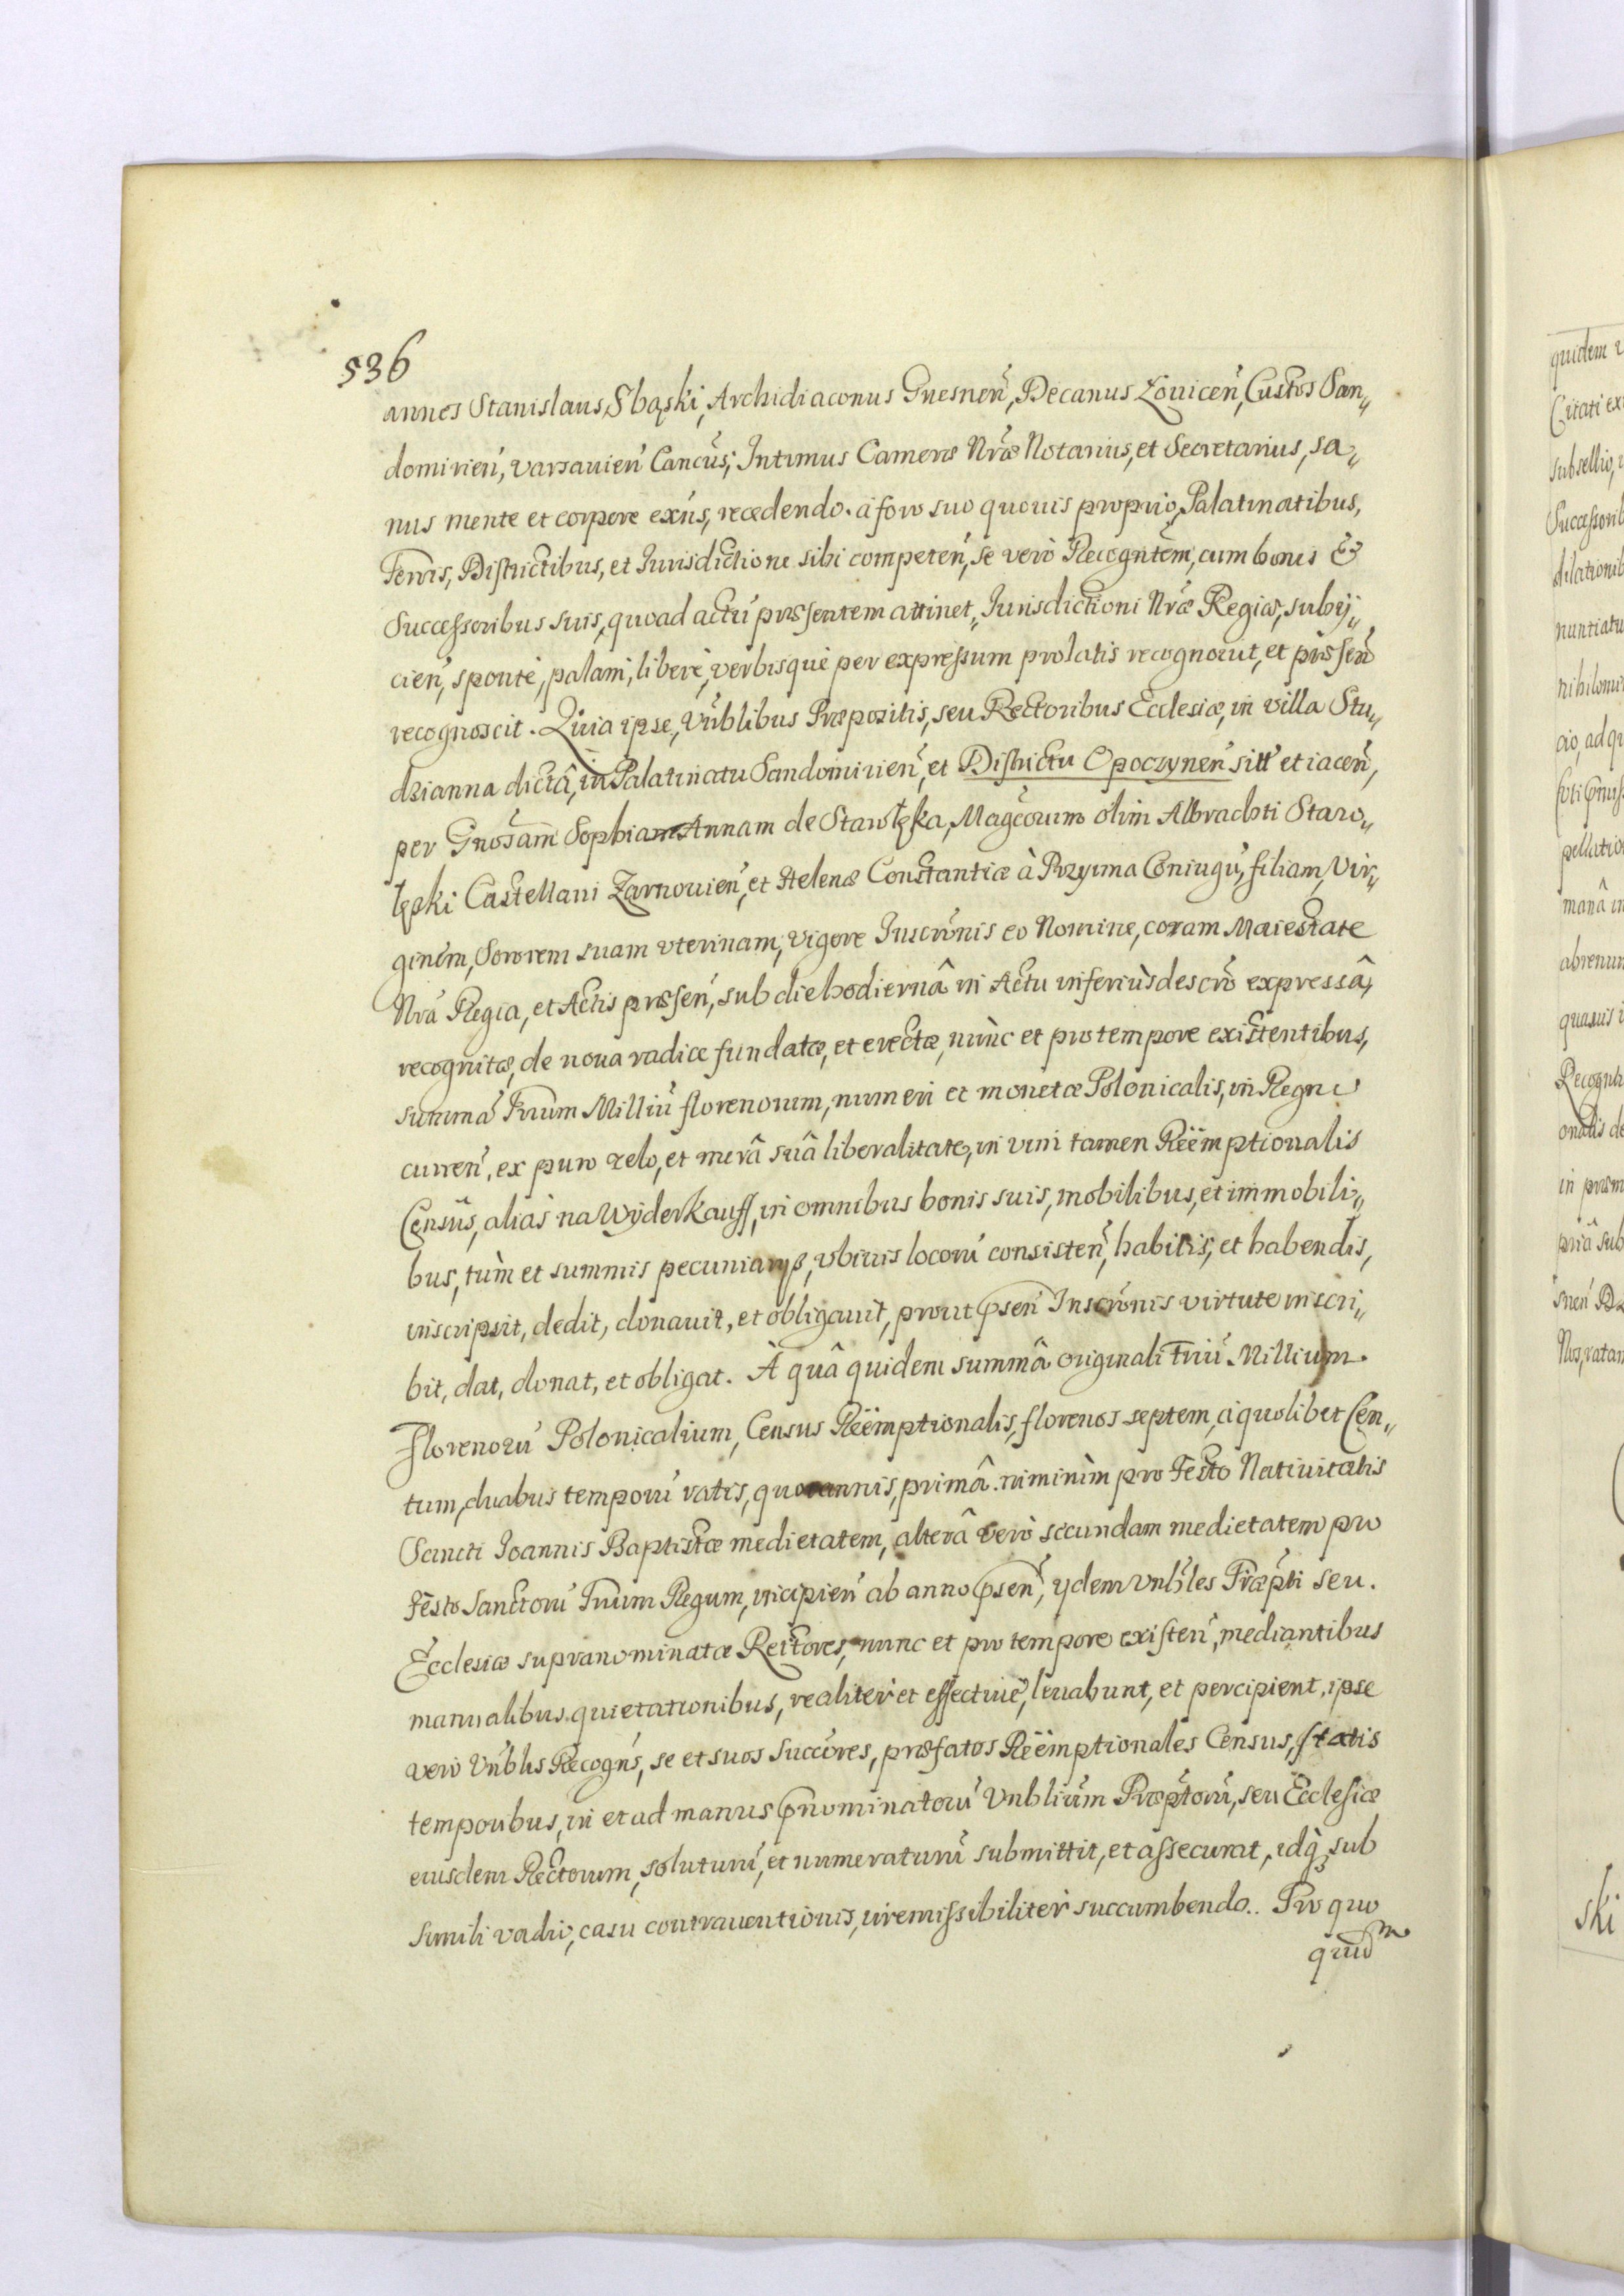 536
annes Stanislaus Sbąski, Archidiaconus Gnesneń, Decanus Łouiceń, Custos San„
domirień, varsauień Cancūs, Intimus Cameræ Nræ Notarius, et Secretarius, sa„
nus mente et corpore exńs, recedendo a foro suo quouis proprio, Palatinatibus,
Terris, Districtibus, et Iurisdictione sibi competeń, se verò Recogntem, cum bonis &
Successoribus suis, quoad actū præsentem attinet, Iurisdictioni Nræ Regiæ, subij„
cień, sponte, palam, liberè, verbisque per expressum prolatis recognouit, et præseń
recognoscit. Quia ipse, Vńblibus Præpositis, seu Rectoribus Ecclesiæ, in villa Stu„
dzianna dictâ, in Palatinatu Sandomirień, et Districtu Opoczyneń sitt et iaceń,
per Gnosam Sophiam Annam de Starołęka, Magcorum olim Albrachti Staro„
łęski Castellani Zarnouień, et Helenæ Constantiæ à Przyima Coniugū, filiam, Vir„
ginem, Sororem suam vterinam, vigore Inscrōnis eo Nomine, coram Maiestate
Nrâ Regia, et Actis præseń, sub die hodiernâ in Actu inferiùs descrō expressâ,
recognitæ, de noua radice fundatæ, et erectæ, nùnc et pro tempore existentibus,
summâ Trium Milliū florenorum, numeri et monetæ Polonicalis, in Regno
curreń, ex puro zelo, et merâ suâ liberalitate, in vim tamen Reëmptionalis
Censūs, aliàs na Wyderkauff, in omnibus bonis suis, mobilibus, et immobili„
bus, tùm et summis pecuniarys, vbiuis locorū consisteń, habitis, et habendis,
inscripsit, dedit, donauit, et obligauit, prout pseń Inscrōnis virtute inscri„
bit, dat, donat, et obligat. À quâ quidem summâ originali Triū Millium
Florenorū Polonicalium, Census Reëmptionalis, florenos septem, à quolibet Cen„
tum, duabus temporū ratis, quotannis, primâ niminìm pro Festo Natiuitatis
Sancti Ioannis Baptistæ medietatem, alterâ verò secundam medietatem pro
Festo Sanctorū Trium Regum, incipień ab anno pseń, ydem Vnbles Præpti seu
Ecclesiæ supranominatæ Rectores, nunc et pro tempore existeń, mediantibus
manualibus quietationibus, realiter et effectiuè, leuabunt, et percipient, ipse
verò Vńblis Recogńs, se et suos Succōres, præfatos Reëmptionales Census, statis
temporibus, in et ad manus pnominatorū Vnblium Præptorū, seu Ecclesiæ
eiusdem Rectorum, soluturū, et numeraturū submittit, et assecurat, idq; sub
simili vadio, casu contrauentionis, irremissibiliter succumbendo. Pro quo
quid͠m